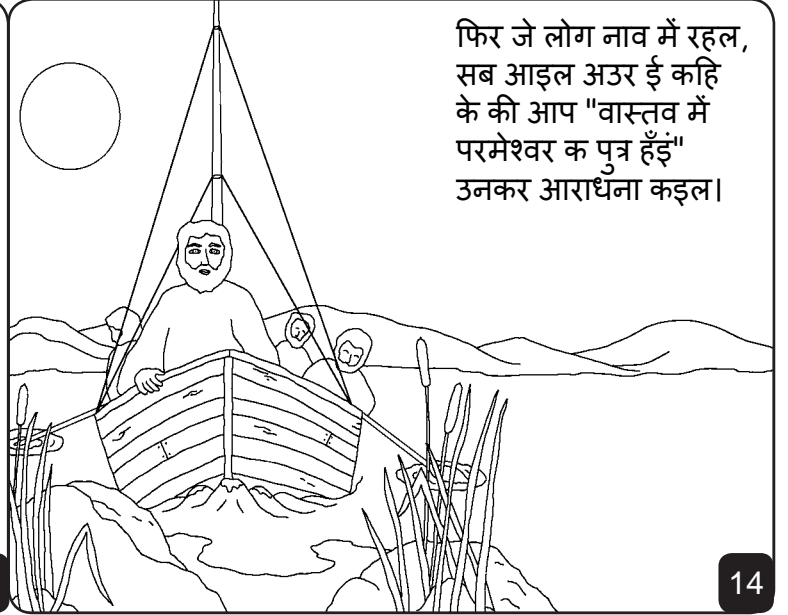 फिर जे लोग नाव में रहल,
सब आइल अउर ई कहि
के की आप "वास्तव में
परमेश्वर क पुत्र हँइं"
उनकर आराधना कइल।
14